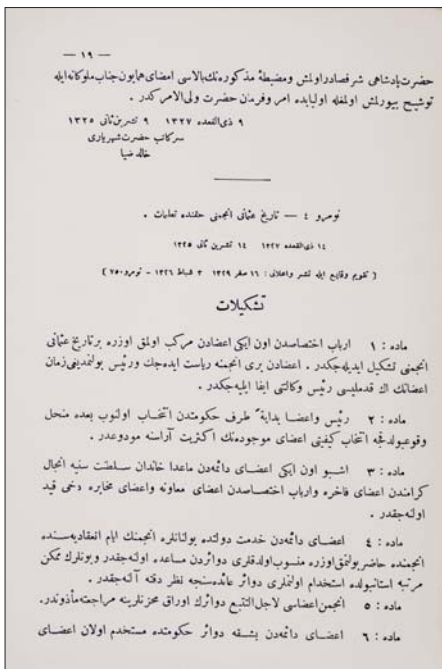 — ١٩ —
حضرت پادشاهی شرفصادر اولمش ومضبطهٔ مذکوره‌نك بالاسی امضای همایون جناب ملوکانه ایله
توشیح بیورلمش اولمغله اولبابده امر وفرمان حضرت ولی الامرکدر .
٩ ذی القعده ١٣٢٧   ٩ تشرین ثانی ١٣٢٥
سرکاتب حضرت شهریاری
خالد ضیا
نومرو ٤ — تاریخ عثمانی انجمنی حقنده تعلیمات .
١٤ ذی القعده ١٣٢٧   ١٤ تشرین ثانی ١٣٢٥
( تقویم وقایع ایله نشر واعلانی : ١٦ صفر ١٣٢٩   ٣ شباط ١٣٢٦ - نومرو ٧٥٠ )
تشکیلات
ماده : ١ ارباب اختصاصدن اون ایکی اعضادن مرکب اولمق اوزره بر تاریخ عثمانی
انجمنی تشکیل ایدیله‌جکدر . اعضادن بری انجمنه ریاست ایده‌جك ورئیس بولنمدیغی زمان
اعضانك اك قدملیسی رئیس وکالتنی ایفا ایلیه‌جکدر .
ماده : ٢ رئیس واعضا بدایةً طرف حکومتدن انتخاب اولنوب بعده منحل
وقوعبولدقجه انتخاب کیفیتی اعضای موجوده‌نك اکثریت آراسنه مودوعدر .
ماده : ٣ اشبو اون ایکی اعضای دائمه‌دن ماعدا خاندان سلطنت سنیه انجال
کرامندن اعضای فاخره وارباب اختصاصدن اعضای معاونه واعضای مخابره دخی قید
اولنه‌جقدر .
ماده : ٤ اعضای دائمه‌دن خدمت دولتده بولنانلره انجمنك ایام انعقادیه‌سنده
انجمنده حاضر بولنمق اوزره منسوب اولدقلری دوائردن مساعده اولنه‌جقدر وبونلرك ممکن
مرتبه استانبولده استخدام اولنملری دوائر عائده‌سنجه نظر دقته آلنه‌جقدر .
ماده : ٥ انجمن اعضاسی لاجل التتبع دوائرك اوراق مخزنلرینه مراجعته مأذوندر.
ماده : ٦ اعضای دائمه‌دن بشقه دوائر حکومتده مستخدم اولان اعضای